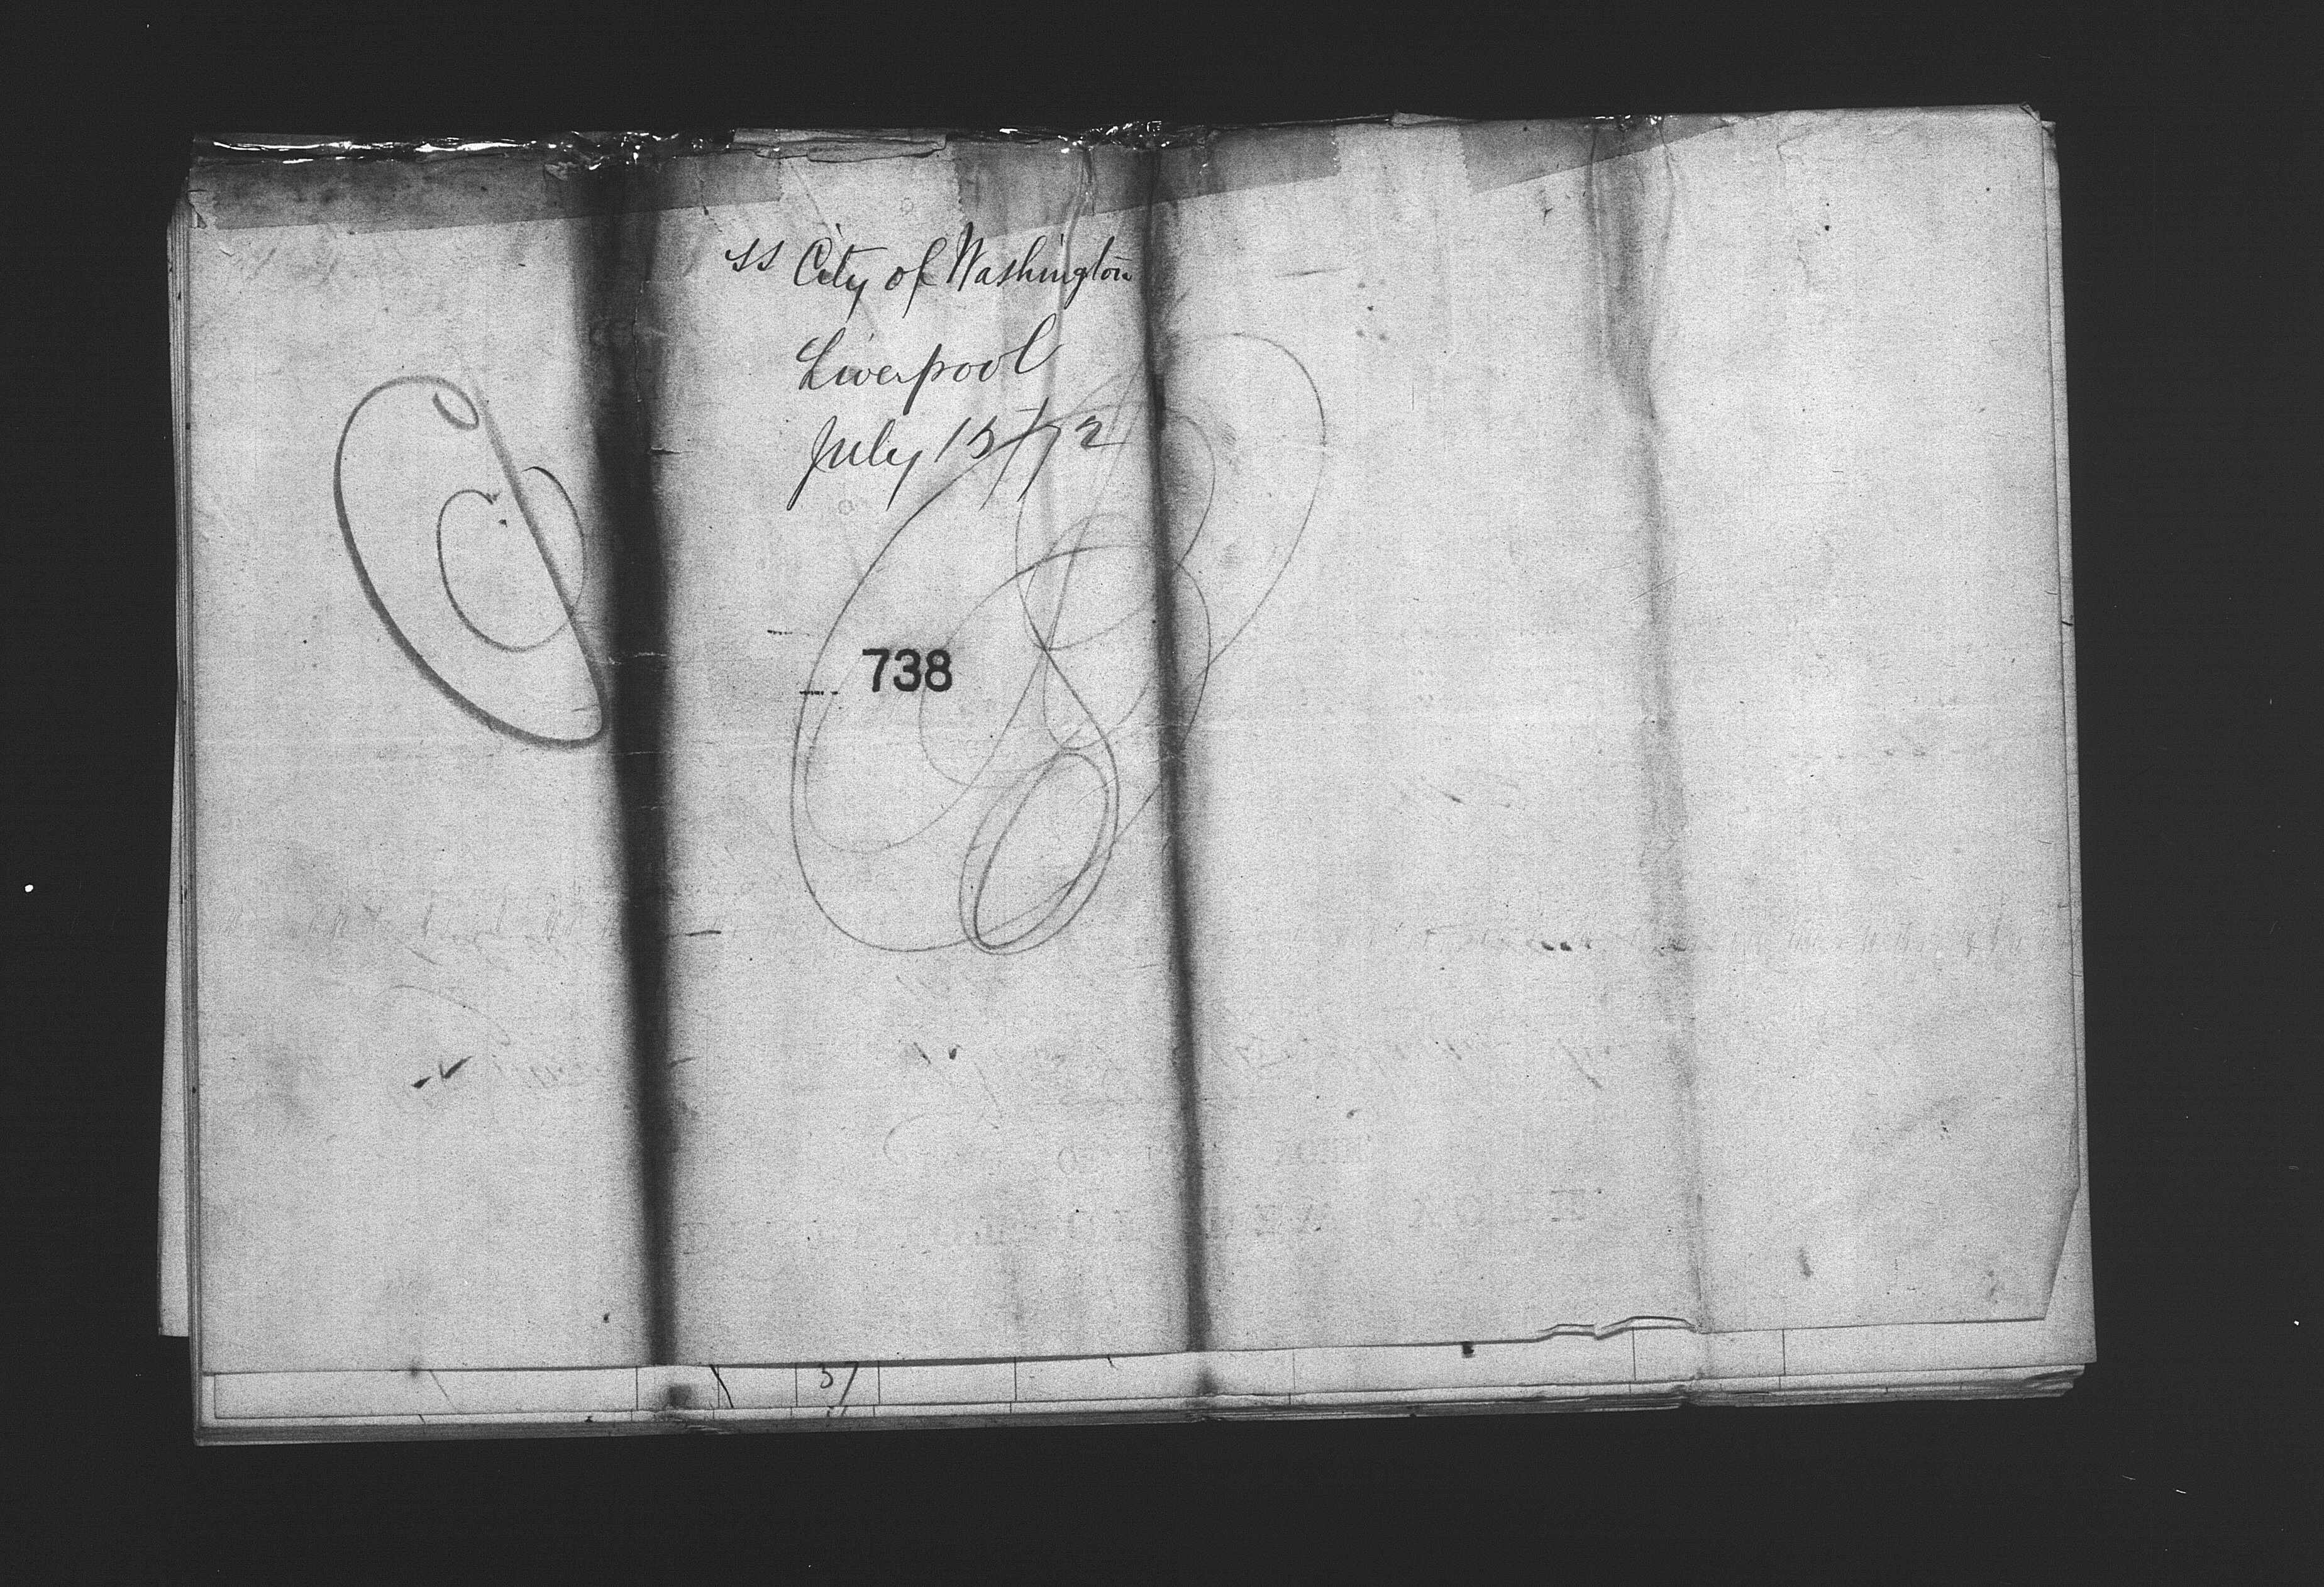 SS City of Washington
Liverpool
July 15/72
738
37